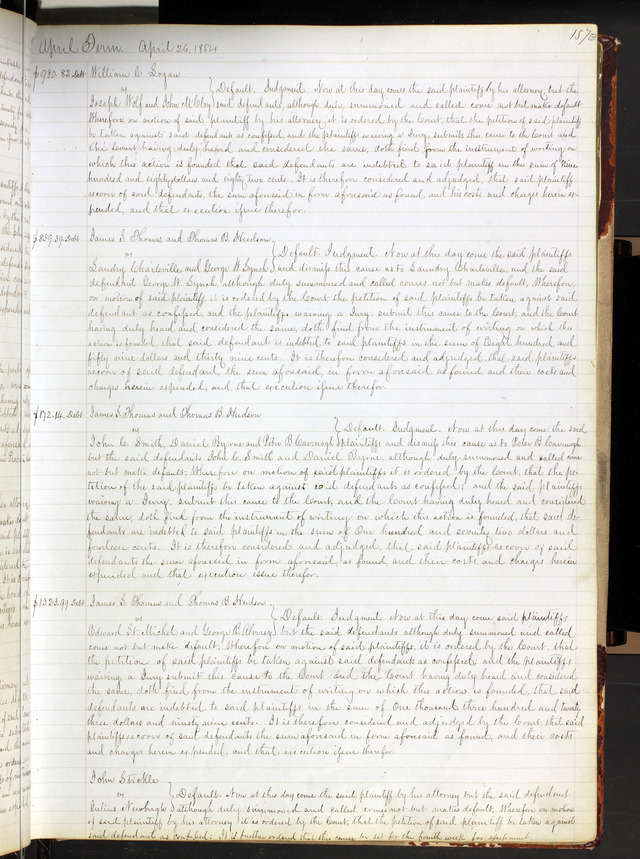 157
April Term April 26, 1854
$980.82 Debt William C. Logan
vs } Default. Judgment. Now at this day comes the said plaintiff by his attorney, but the
Joseph Wolf and John McCloy said defendants, although duly summoned and called come not but make default
Wherefore, on motion of said plaintiff by his attorney, it is ordered by the Court, that the petition of said plaintiff
be taken against said defendants as confessed, and the plaintiff waiving a Jury, submits this cause to the Court and
the Court having duly heard and considered the same, doth find from the instrument of writing, on
which this action is founded that said defendants are indebted to said plaintiff in the sum of Nine
hundred and eighty dollars and eighty two cents. It is therefore considered and adjudged, that said plaintiff
recover of said defendants, the sum aforesaid in form aforesaid as found, and his costs and charges herein ex-
pended, and that execution issue therefor.
$859.39 Debt James S. Thomas and Thomas B. Hudson
vs } Default. Judgment. Now at this day come the said plaintiffs
Landry Charleville and George W. Lynch and dismiss this cause as to Laundry Charleville, and the said
defendant George W. Lynch, although duly summoned and called comes not but makes default. Wherefore,
on motion of said plaintiff, it is ordered by the Court, the petition of said plaintiffs be taken against said
defendant as confessed, and the plaintiffs waiving a Jury, submit this cause to the Court, and the Court
having duly heard and considered the same, doth find from the instrument of writing on which this
action is founded, that said defendant is indebted to said plaintiffs in the sum of Eight hundred and
fifty nine dollars and thirty nine cents. It is therefore considered and adjudged, that said plaintiffs
recover of said defendant the sum aforesaid, in form aforesaid as found, and their costs and
charges herein expended, and that execution issue therefor.
$172.14 Debt James S. Thomas and Thomas B. Hudson
vs } Default. Judgment. Now at this day come the said
John C. Smith, Daniel Byrne and Peter B. Cavenagh plaintiffs and dismiss this cause as to Peter B. Cavenagh
but the said defendants John C. Smith and Daniel Byrne, although duly summoned and called come
not but make default. Wherefore on motion of said plaintiffs it is ordered by the Court, that the pe-
tition of the said plaintiffs be taken against said defendants as confessed; and the said plaintiffs
waiving a Jury, submit this cause to the Court, and the Court having duly heard and considered
the same, doth find from the instrument of writing on which this action is founded, that said de-
fendants are indebted to said plaintiffs in the sum of One hundred and seventy two dollars and
fourteen cents. It is therefore considered and adjudged, that said plaintiffs recover of said
defendants the sum aforesaid in form aforesaid, as found and their costs and charges herein
expended and that execution issue therefor.
$1323.99 Debt James S. Thomas and Thomas B. Hudson
vs } Default. Judgment. Now at this day come said plaintiffs
Edward St. Michel and George R. but the said defendants although duly summoned and called
come not but make default. Wherefore on motion of said plaintiffs, it is ordered by the Court, that
the petition of said plaintiffs be taken against said defendants as confessed, and the plaintiffs
waiving a Jury submit this cause to the Court and the Court having duly heard and considered
the same, doth find, from the instrument of writing on which this action is founded, that said
defendants are indebted to said plaintiffs in the sum of One thousand three hundred and twenty
three dollars and ninety nine cents. It is therefore considered and adjudged by the Court, that said
plaintiffs recover of said defendants the sum aforesaid in form aforesaid as found, and their costs
and charges herein expended, and that execution issue therefor.
John Stickle
vs } Default. Now at this day come the said plaintiff by his attorney but the said defendant
Julius although duly summoned and called comes not but makes default. Wherefore on motion
of said plaintiff by his attorney it is ordered by the Court, that the petition of said plaintiff be taken against
said defendant as confessed. It is further ordered that this cause be set for the fourth week for